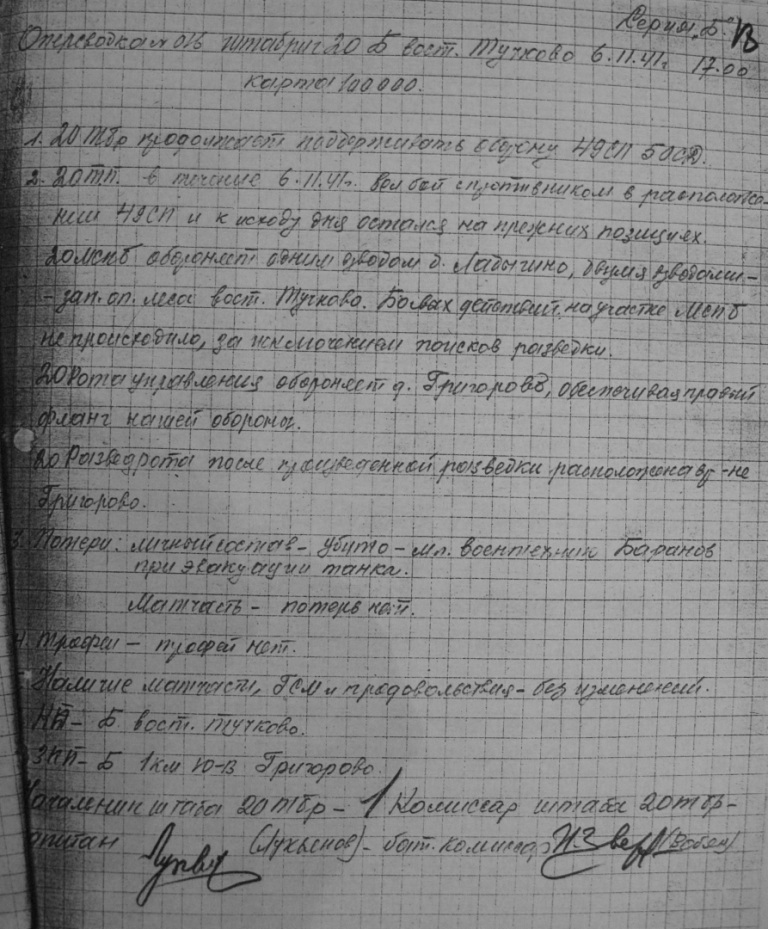 Серия "Б"
Оперсводка № 013 штабриг 20 Б вост. Тучково 6.11.41г. 17.00
карта 100000.
1. 20 Тбр продолжает поддерживать оборону 49СП 50СД.
2. 20ТП. в течение 6.11.41г. вел бой с противником в расположе-
нии 49СП и к исходу дня остался на прежних позициях.
20 Мспб обороняет одним взводом д. Лабыгино, двумя взводами -
- зап. оп. леса вост. Тучково. Боевых действий на участке Мспб
не происходило, за исключением поисков разведки.
20 Рота управления обороняет д. Григорово, обеспечивая правый
фланг нашей обороны.
20 Разведрота после произведенной разведки расположена в р-не
Григорово.
3. Потери: личный состав - убито - мл. воентехник Баранов
при эвакуации танка.
Матчасть - потерь нет.
4. Трофеи - трофей нет.
Наличие матчасти, ГСМ и продовольствия - без изменений.
КП - Б. вост. Тучково.
ЗКП - Б 1 км Ю-В Григорово.
Начальник штаба 20 Тбр - Комиссар штаба 20 Тбр -
капитан (Лукьянов) - бат. комиссар